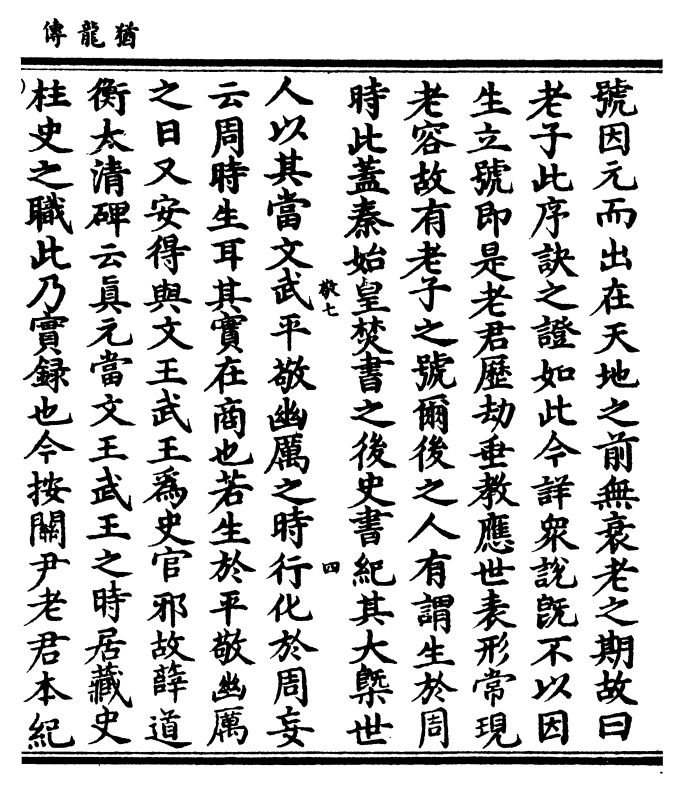 猶龍傳
號因元而出在天地之前無衰老之期故曰
老子此序訣之證如此今詳眾說旣不以因
生立號即是老君歷劫垂教應世表形常現
老容故有老子之號爾後之人有謂生於周
時此蓋秦始皇焚書之後史書紀其大槩世
敬七
四
人以其當文武平敬幽厲之時行化於周妄
云周時生耳其實在商也若生於平敬幽厲
之日又安得與文王武王爲史官邪故薛道
衡太清碑云眞元當文王武王之時居藏史
柱史之職此乃實録也今按關尹老君本紀